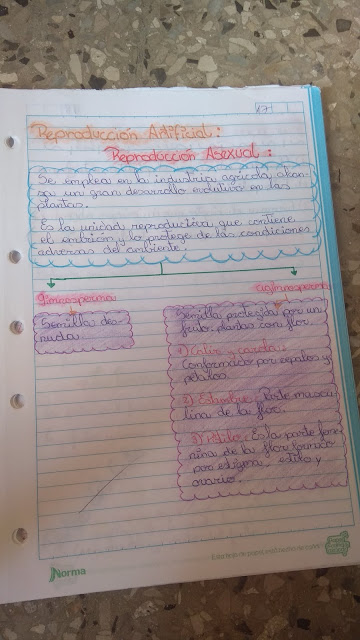 Reproducción Artificial:
Reproducción Asexual:
Se emplea en la industria agrícola, alcan
za un gran desarrollo evolutivo en las
plantas.
Es la unidad reproductiva que contiene
el embrión y lo protege de las condiciones
adversas del ambiente.
gimnosperma
Semilla des-
nuda.
angiosperma
Semilla protegida por un
fruto. plantas con flor.
1) Caliz y corola:
Conformado por sepalos y
petalos.
2) Estambre: Parte mascu
lina de la flor.
3) Pistilo: Es la parte feme
nina de la flor
por estigma, estilo y
ovario.
Norma